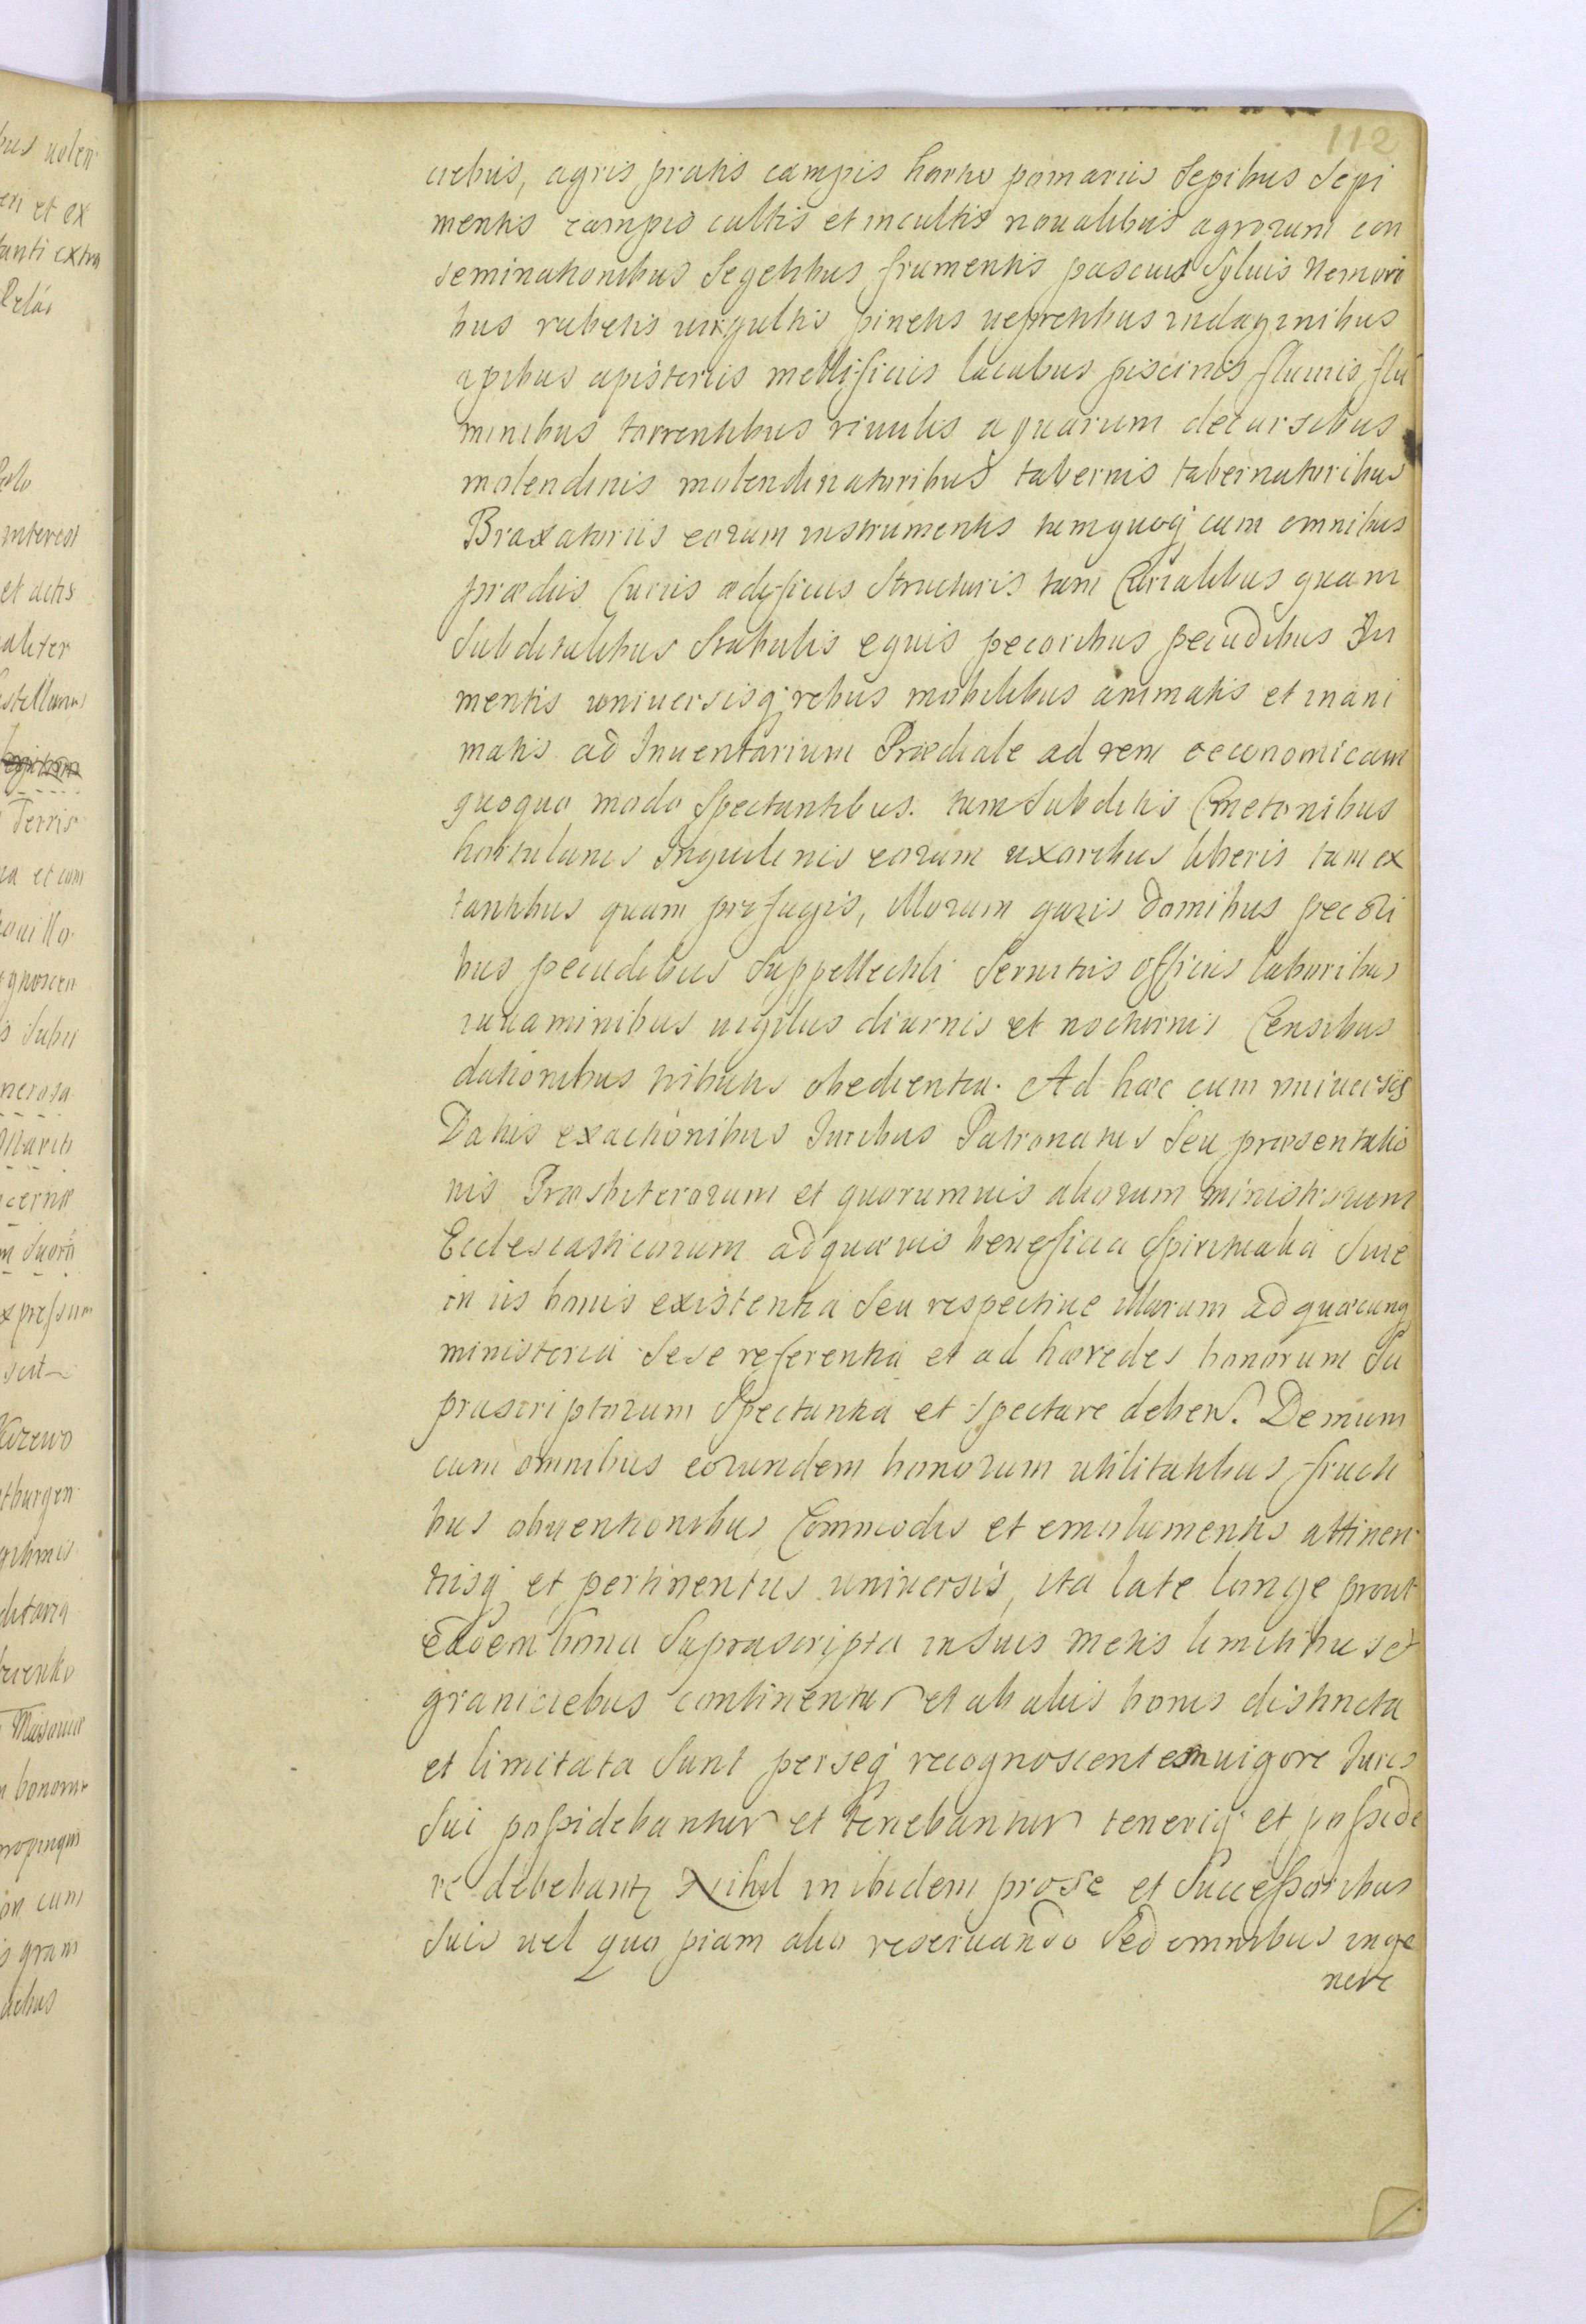 112
ciebus, agris pratis campis horto pomariis Sepibus Sepi
mentis campis cultis et incultis noualibus agrorum con
seminationibus Segetibus frumentis pascuis Syluis Nemori
bus rubetis uirgultis pinetis uepretibus indaginibus
apibus apisteriis mellificiis lacubus piscinis fluuiis flu
minibus torrentibus riuulis aquarum decursibus
molendinis molendinatoribus tabernis tabernatoribus
Braxatoriis eorum instrumentis tumquoq cum omnibus
prædiis Curiis ædificiis Structuris tam Curialibus quam
Subditalibus Stabulis equis pecoribus pecudibus Iu
mentis uniuersisq rebus mobilibus animatis et inani
matis ad Inuentarium Prædiale ad rem oeconomicam
quoquo modo Spectantibus. tum Subditis Cmetonibus
hortulanis Inquilinis eorum uxoribus liberis tam ex
tantibus quam profugis, illorum gazis domibus pecori
bus pecudibus Suppellectili Seruitiis officiis laboribus
iuuaminibus uigiliis diurnis et nocturnis Censibus
dationibus tributis obedientia. Ad hæc cum uniuersis
Datiis exactionibus Iuribus Patronatus Seu præsentatio
nis Præsbiterorum et quorumuis aliorum ministrorum
Ecclesiasticorum ad quæuis beneficia Spiritualia Siue
in iis bonis existentia Seu respectiue illorum ad quæcunq
ministeria Sese referentia et ad hæredes bonorum Su
prascriptorum Spectantia et spectare deben. Demum
cum omnibus eorundem bonorum utilitatibus fructi
bus obuentionibus Commodis et emolumentis attinen
tiisq et pertinentiis uniuersis, ita late longe prout
eadem bona Suprascripta in Suis metis limitibus et
graniciebus continentur et ab aliis bonis distincta
et limitata Sunt perseq recognoscentem uigore Iuris
Sui poſsidebantur et tenebantur teneriq et poſside
ri debebant Nihil inibidem pro se et Succeſsoribus
Suis uel quo piam alio reseruando Sed omnibus in ge
nere